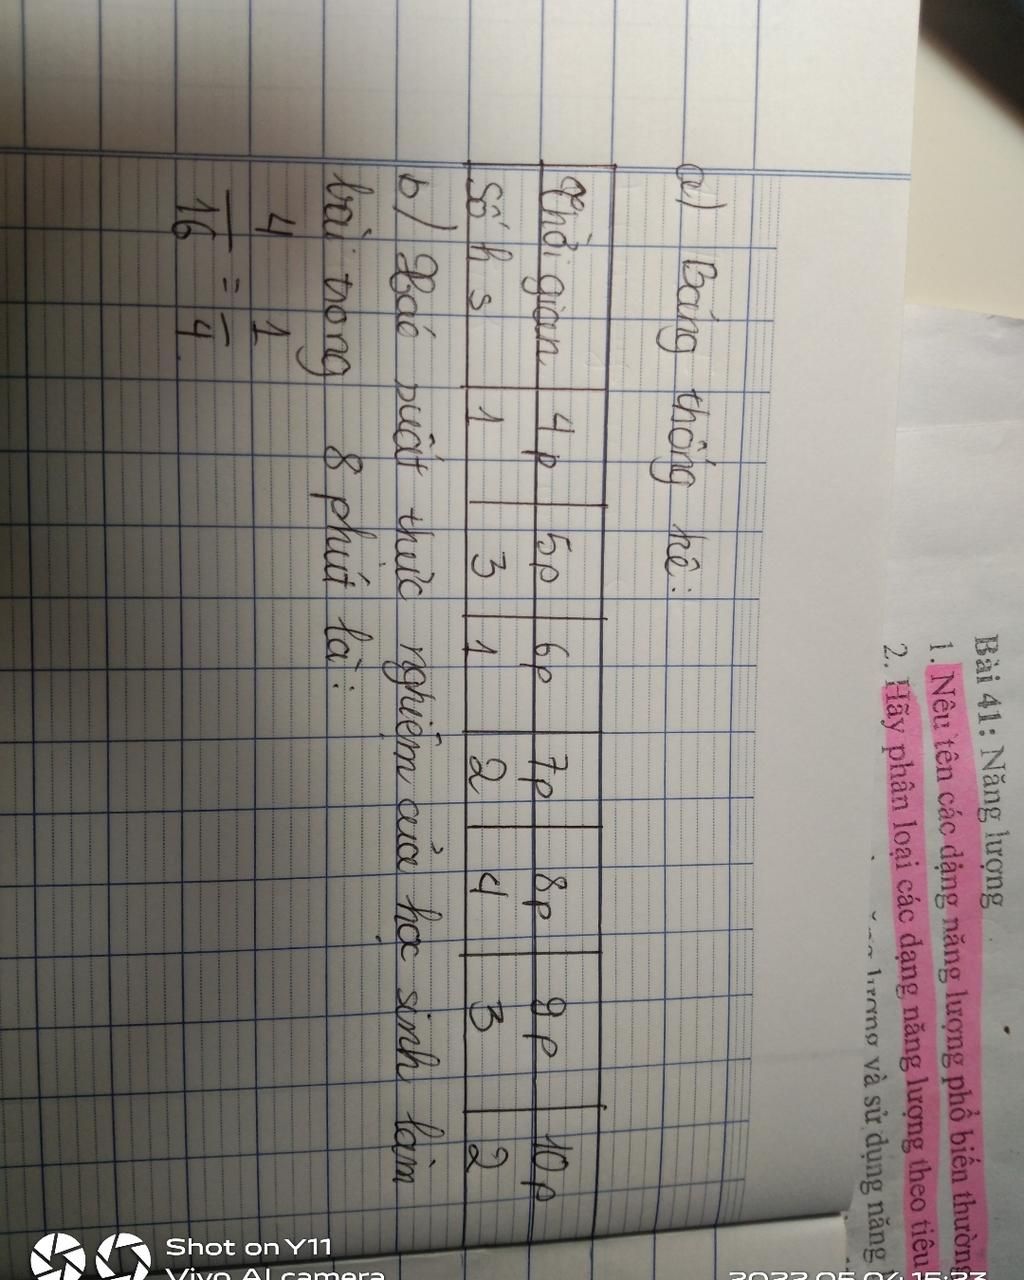 Bài 41: Năng lượng
1. Nêu tên các dạng năng lượng phổ biến thường
2. Hãy phân loại các dạng năng lượng theo tiêu
lượng và sử dụng năng
a) Bảng thống kê:
Thời gian 4p 5p 6p 7p 8p 9p 10p
Số hs 1 3 1 2 4 3 2
b) Xác suất thực nghiệm của học sinh làm
bài trong 8 phút là:
4 1
— = —
16 4
Shot on Y11
Vivo AI camera
2023.05.04 15:23